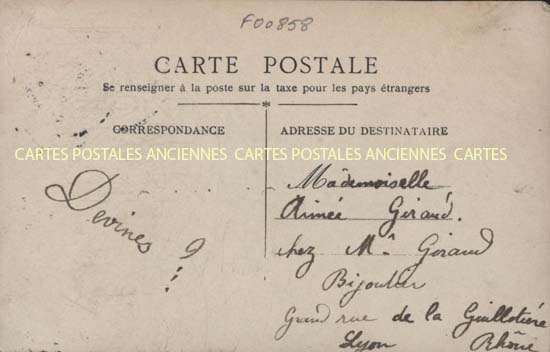 F00858
CARTE POSTALE
Se renseigner à la poste sur la taxe pour les pays étrangers
CORRESPONDANCE
ADRESSE DU DESTINATAIRE
CARTES POSTALES ANCIENNES CARTES POSTALES ANCIENNES CARTES
Devines ?
Mademoiselle
Aimée Giraud.
chez Mr Giraud
Bijoutier
Grand rue de la Guillotière
Lyon Rhône